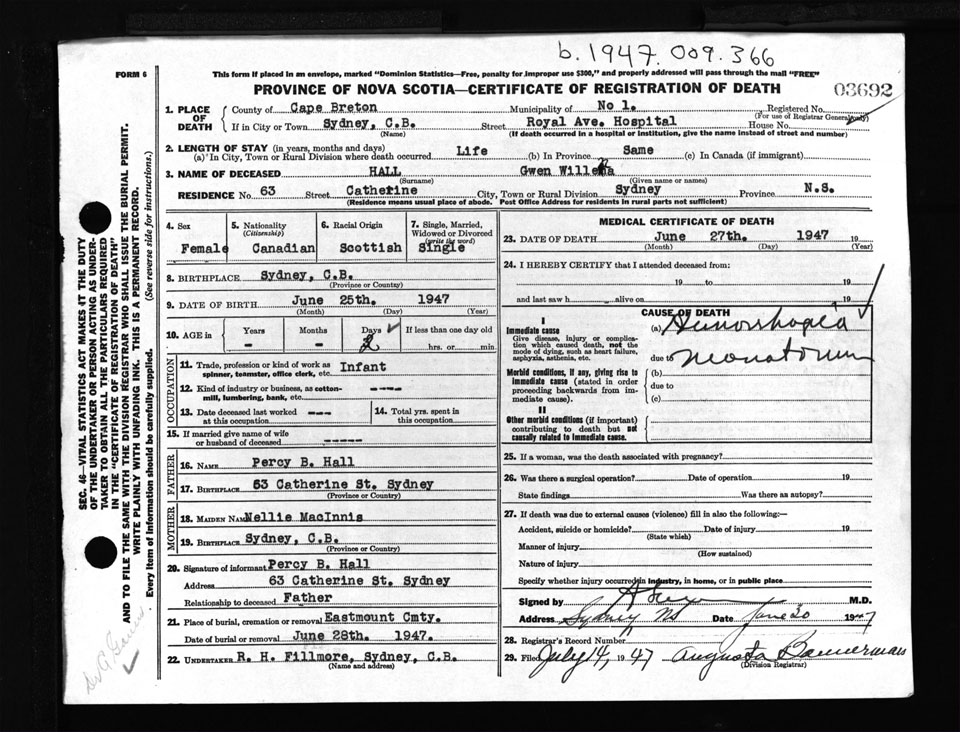 b. 1947. 009. 366
FORM 6
This form if placed in an envelope, marked "Dominion Statistics—Free, penalty for improper use $300," and properly addressed will pass through the mail "FREE"
PROVINCE OF NOVA SCOTIA—CERTIFICATE OF REGISTRATION OF DEATH
03692
1. PLACE OF DEATH
County of Cape Breton Municipality of No 1. Registered No.
(For use of Registrar General only)
If in City or Town Sydney, C.B. Street Royal Ave. Hospital House No.
(Name) (If death occurred in a hospital or institution, give the name instead of street and number)
2. LENGTH OF STAY (in years, months and days)
(a) In City, Town or Rural Division where death occurred Life (b) In Province Same (c) In Canada (if immigrant)
3. NAME OF DECEASED HALL Gwen
(Surname) (Given name or names)
RESIDENCE No 63 Street Catherine City, Town or Rural Division Sydney Province N.S.
(Residence means usual place of abode. Post Office Address for residents in rural parts not sufficient)
4. Sex
Female
5. Nationality
(Citizenship)
Canadian
6. Racial Origin
Scottish
7. Single, Married,
Widowed or Divorced
(write the word)
Single
8. BIRTHPLACE Sydney, C.B.
(Province or Country)
9. DATE OF BIRTH June 25th. 1947
(Month) (Day) (Year)
10. AGE in
Years Months Days If less than one day old
- - 2 hrs. or min.
OCCUPATION
11. Trade, profession or kind of work as Infant
spinner, teamster, office clerk, etc.
12. Kind of industry or business, as cotton- ----
mill, lumbering, bank, etc.
13. Date deceased last worked ---
at this occupation
14. Total yrs. spent in
this occupation
15. If married give name of wife
or husband of deceased -----
FATHER
16. NAME Percy B. Hall
17. BIRTHPLACE 63 Catherine St. Sydney
(Province or Country)
MOTHER
18. MAIDEN NAME Nellie MacInnis
19. BIRTHPLACE Sydney, C.B.
(Province or Country)
20. Signature of informant Percy B. Hall
Address 63 Catherine St. Sydney
Relationship to deceased Father
21. Place of burial, cremation or removal Eastmount Cmty.
Date of burial or removal June 28th. 1947.
22. UNDERTAKER R. H. Fillmore, Sydney, C.B.
(Name and address)
MEDICAL CERTIFICATE OF DEATH
23. DATE OF DEATH June 27th. 1947 19
(Month) (Day) (Year)
24. I HEREBY CERTIFY that I attended deceased from:
19 to 19
and last saw h alive on 19
CAUSE OF DEATH
I
Immediate cause
Give disease, injury or complica-
tion which caused death, not the
mode of dying, such as heart failure,
asphyxia, asthenia, etc.
(a) Hemorrhagia
due to neonatorum
Morbid conditions, if any, giving rise to
immediate cause (stated in order
proceeding backwards from im-
mediate cause).
(b)
due to
(c)
II
Other morbid conditions (if important)
contributing to death but not
causally related to immediate cause.
25. If a woman, was the death associated with pregnancy?
26. Was there a surgical operation? Date of operation 19
State findings Was there an autopsy?
27. If death was due to external causes (violence) fill in also the following:—
Accident, suicide or homicide? Date of injury 19
(State which)
Manner of injury
(How sustained)
Nature of injury
Specify whether injury occurred in industry, in home, or in public place
Signed by M.D.
Address Sydney NS Date June 30 1947
28. Registrar's Record Number
29. Filed July 14, 1947 Augusta Bannerman
(Division Registrar)
SEC. 46—VITAL STATISTICS ACT MAKES IT THE DUTY
OF THE UNDERTAKER OR PERSON ACTING AS UNDER-
TAKER TO OBTAIN ALL THE PARTICULARS REQUIRED
IN THE "CERTIFICATE OF REGISTRATION OF DEATH"
AND TO FILE THE SAME WITH THE DIVISION REGISTRAR WHO SHALL ISSUE THE BURIAL PERMIT.
WRITE PLAINLY WITH UNFADING INK. THIS IS A PERMANENT RECORD.
Every item of information should be carefully supplied. (See reverse side for instructions.)